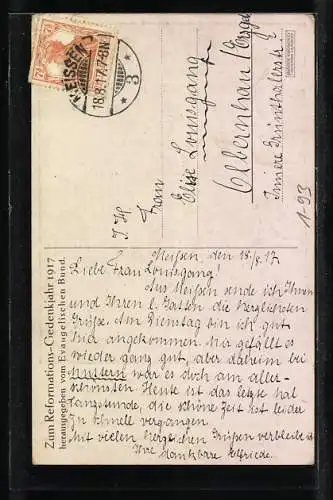 Zum Reformations-Gedenkjahr 1917
herausgegeben vom Evangelischen Bund.
MEISSEN
18.8.17.7-8N
* 3 *
7½
Meißen, den 18/8.17
Liebe Frau Louisgang!
Aus Meißen sende ich Ihnen
und Ihren l. Gatten die herzlichsten
Grüße. Am Dienstag bin ich gut
hier angekommen. Mir gefällt es
wieder ganz gut, aber daheim bei
Muttern war es doch am aller-
schönsten. Heute ist das letzte mal
die schöne Zeit ist leider
zu schnell vergangen.
Mit vielen herzlichen Grüßen verbleibe ich
Ihre dankbare Elfriede.
Frau
Elise Louisgang
Olbernhau/Erzgeb
Innere Grünthalerstr
1-93